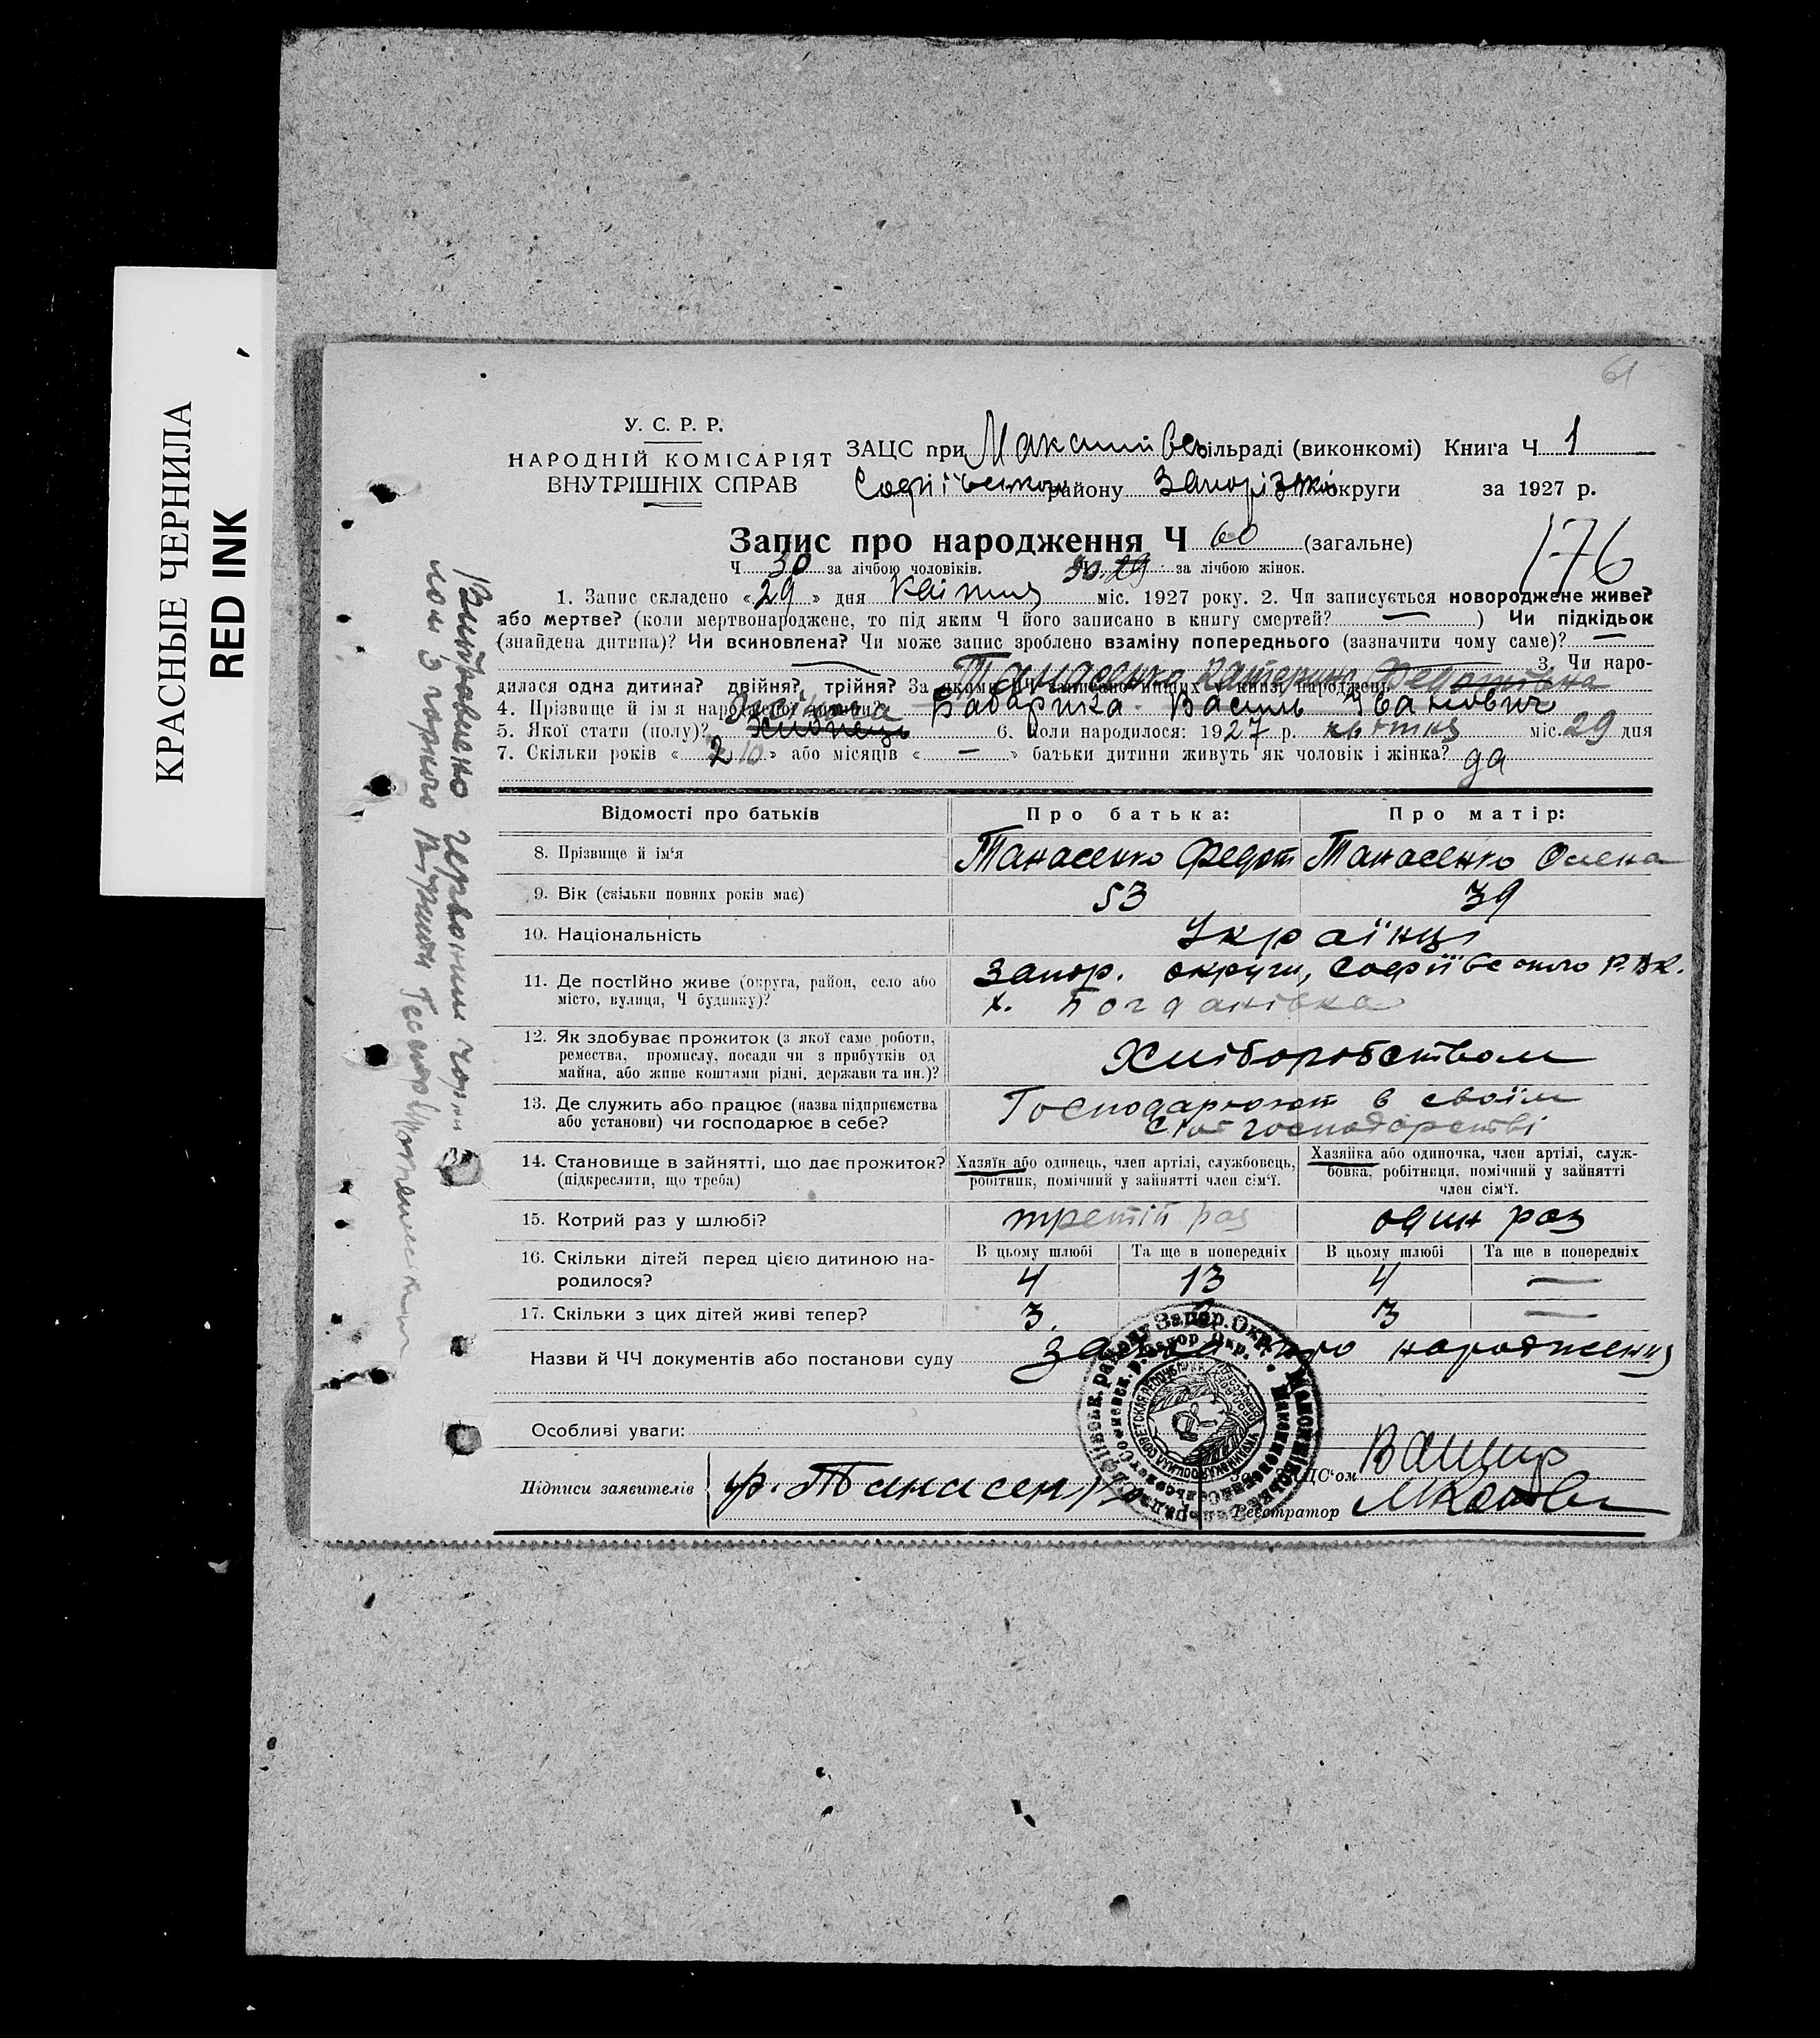 КРАСНЫЕ ЧЕРНИЛА
RED INK
61
У. С. Р. Р.
НАРОДНІЙ КОМІСАРІЯТ
ВНУТРІШНІХ СПРАВ
ЗАЦС при Максимівсь сільраді (виконкомі) Книга Ч 1
Софіївською району Запорізької округи за 1927 р.
Запис про народження Ч 60 (загальне)
176
Ч 30 за лічбою чоловіків. Ч 29 за лічбою жінок.
1. Запис складено «29» дня квітня міс. 1927 року. 2. Чи записується новороджене живе?
або мертве? (коли мертвонароджене, то під яким Ч його записано в книгу смертей? — ) Чи підкідьок
(знайдена дитина)? Чи всиновлена? Чи може запис зроблено взаміну попереднього (зазначити чому саме)? —
3. Чи наро-
дилася одна дитина? двійня? трійня? За якими ЧЧ записано инших в книзі народжень
Танасенко Катерина Федотівна
4. Прізвище й ім'я народженої дитини? Бабарика Василь Іванович
5. Якої стати (полу)? хлопець дівчина 6. Коли народилося: 1927 р. квітня міс. 29 дня
7. Скільки років «20» або місяців « — » батьки дитини живуть як чоловік і жінка? да
Відомості про батьків Про батька: Про матір:
8. Прізвище й ім'я Танасенко Федот Танасенко Олена
9. Вік (скільки повних років має) 53 39
10. Національність Українці
11. Де постійно живе (округа, район, село або
місто, вулиця, Ч будинку)?
Запор. округи, Софіївського Р.В.К.
х. Богданівка
12. Як здобуває прожиток (з якої саме роботи,
ремества, промислу, посади чи з прибутків од
майна, або живе коштами рідні, держави та ин.)?
Хліборобством
13. Де служить або працює (назва підприємства
або установи) чи господарює в себе?
Господарюют в своїм
господорстві
14. Становище в зайнятті, що дає прожиток?
(підкреслити, що треба)
Хазяїн або одинець, член артілі, службовець,
робітник, помічний у зайнятті член сім'ї.
Хазяйка або одиночка, член артілі, служ-
бовка, робітниця, помічний у зайнятті
член сім'ї.
15. Котрий раз у шлюбі? третій раз один раз
16. Скільки дітей перед цією дитиною на-
родилося?
В цьому шлюбі Та ще в попередніх В цьому шлюбі Та ще в попередніх
4 13 4 —
17. Скільки з цих дітей живі тепер? 3. 3 —
Назви й ЧЧ документів або постанови суду народження
Особливі уваги:
Підписи заявителів Ф. Танасенко
Зав. ЗАЦС'ом
Реєстратор
Виправлено червоним